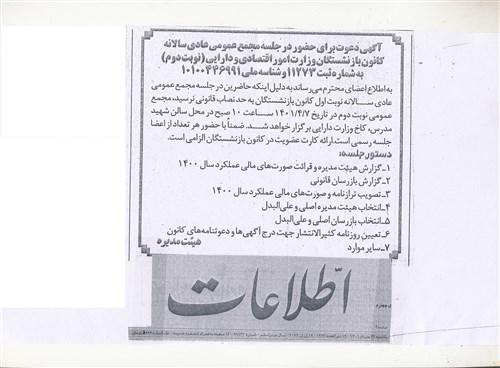 آگهی دعوت برای حضور در جلسه مجمع عمومی عادی سالانه
کانون بازنشستگان وزارت امور اقتصادی و دارایی (نوبت دوم)
به شماره ثبت ۱۱۲۷۳ و شناسه ملی ۱۰۱۰۰۴۴۶۹۹۱
به اطلاع اعضای محترم می‌رساند به دلیل اینکه حاضرین در جلسه مجمع عمومی
عادی سالانه نوبت اول کانون بازنشستگان به حد نصاب قانونی نرسید، مجمع
عمومی نوبت دوم در تاریخ ۱۴۰۱/۴/۷ ساعت ۱۰ صبح در محل سالن شهید
مدرس، کاخ وزارت دارایی برگزار خواهد شد. ضمناً با حضور هر تعداد از اعضا
جلسه رسمی است. ارائه کارت عضویت در کانون بازنشستگان الزامی است.
دستور جلسه:
۱-گزارش هیئت مدیره و قرائت صورت‌های مالی عملکرد سال ۱۴۰۰
۲-گزارش بازرسان قانونی
۳-تصویب ترازنامه و صورت‌های مالی عملکرد سال ۱۴۰۰
۴-انتخاب هیئت مدیره اصلی و علی‌البدل
۵-انتخاب بازرسان اصلی و علی‌البدل
۶-تعیین روزنامه کثیرالانتشار جهت درج آگهی‌ها و دعوتنامه‌های کانون
۷-سایر موارد
هیئت مدیره
اطلاعات